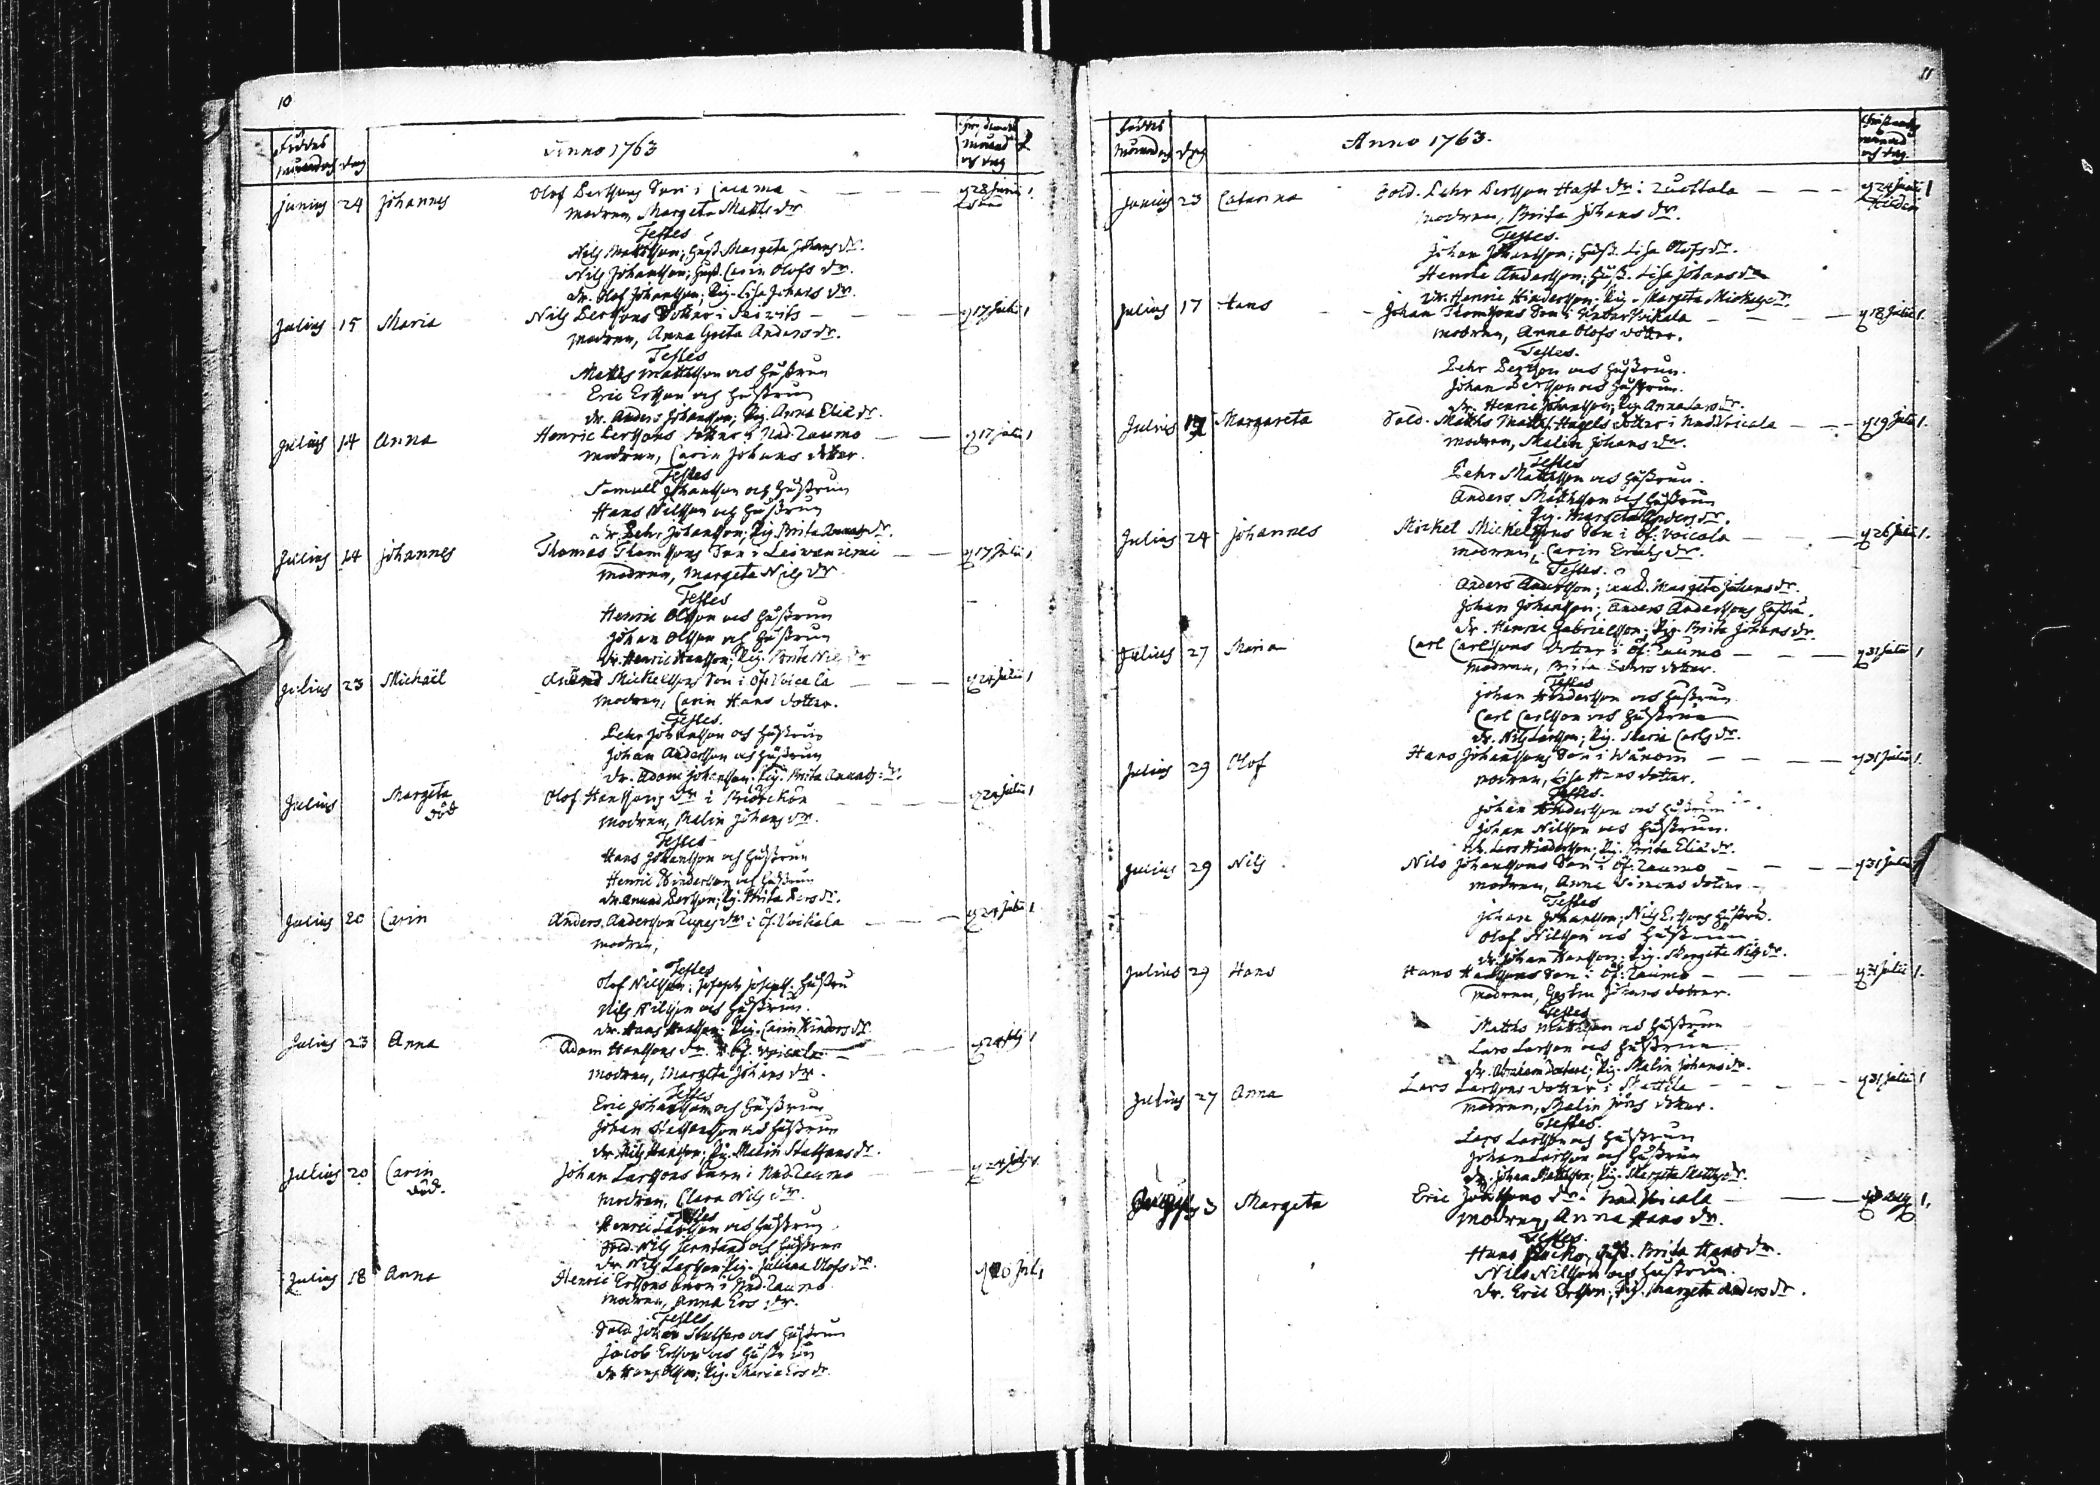 10
Anno 1763
födes
månad och dag
månad
och dag
Junius 24 Johannes Olof Bertssons Son i q 28 Junii 1
modren, Margeta Matts dr
Testes
Nils Mattsson; Hust. Margeta Johans dr.
Nils Johansson; Hust. Carin Olofs dr.
dr. Olof Johansson; Pig. Lisa Johans dr.
Julius 15 Maria Nils Bertssons dotter i q 17 Julii 1
modren, Anna Greta Anders dr.
Testes
Matts Mattsson och Hustrun
Eric Ersson och Hustrun
dr. Anders Johansson; Pig. Anna Elia dr.
Julius 14 Anna Henric Perssons dotter i Nad. Zaumo q 17 Julii 1
modren, Carin Johans dotter.
Testes
Samuel Johansson och Hustrun
Hans Nilsson och Hustrun
dr. Pehr Johansson; Pig. Brita dr.
Julius 14 Johannes Thomas Thomssons Son i q 17 Julii 1
modren, Margeta Nils dr
Testes
Henric Olsson och Hustrun
Johan Olsson och Hustrun
dr. Henric Hansson; Pig. Brita
Julius 23 Michaël Mickelssons Son i Öf. Voicala q 24 Julii 1
modren, Carin Hans dotter.
Testes.
Pehr Johansson och Hustrun
Johan Andersson och Hustrun
dr. Adam Johansson; Pig. Brita dr.
Julius Margeta Olof Hanssons dr i q 24 Julii 1
död modren, Malin Johans dr.
Testes
Hans Johansson och Hustrun
Henric Hindersson och Hustrun
dr. Anund Persson; Pig. Brita Pers dr.
Julius 20 Carin Anders Andersson dr i Öf. Voikala q 24 Julii 1
modren,
Testes
Olof Nilsson; Joseph Josephs. Hustru
Nils Nilsson och Hustrun.
dr. Hans Hansson; Pig. Carin Hinders dr.
Julius 23 Anna Adam Hanssons dr. i Öf. Voicala q 24 Julij 1
modren, Margeta Johans dr.
Testes
Eric Johansson och Hustrun
Johan Staffansson och Hustrun
dr. Nils Hansson; Pig. Malin Staffans dr.
Julius 20 Carin Johan Larssons barn i Nad Zaumo q 24 Julij 1
död. modren, Clara Nils dr.
Testes
Henric Larsson och Hustrun
Sold. Nils och Hustrun
dr. Nils Larsson; Pig. Juliana Olofs dr.
Julius 18 Anna Henric Erssons barn i Nad. Zaumo Jul. 1
modren, Anna Ers dr.
Testes
Sold. Johan och Hustrun
Jacob Ersson och Hustrun
dr. Hans Olsson; Pig. Maria Ers dr.
11
Anno 1763.
födes
månad och dag
månad
och dag
Junius 23 Catarina Sold. Pehr Bertsson Hast dr i q 24 Junii 1
modren, Brita Johans dr.
Testes.
Johan Johansson; Hust. Lisa Olofs dr.
Henric Andersson; Hust. Lisa Johans dr
dr. Henric Hindersson; Pig. Margeta Mickels dr.
Julius 17 Hans Johan Thomssons Son i Voikala q 18 Julii 1.
modren, Anna Olofs dotter.
Testes.
Pehr Persson och Hustrun.
Johan Bertsson och Hustrun.
dr. Henric Johansson; Pig. Anna Lars dr.
Julius Margareta Sold. Matths Matts. Hagels dotter i Nad Voicala q 19 Julii 1.
modren, Malin Johans dr.
Testes
Pehr Mattsson och Hustrun.
Anders Mattsson och Hustrun
Pig. Margeta Anders dr.
Julius 24 Johannes Mickel Mickelssons Son i Öf. Voicala q 26 Julii 1.
modren, Carin Erichs dr.
Testes.
Anders Andersson; Margeta Johans dr.
Johan Johansson; Anders Anderssons Hustru.
dr. Henric Gabrielsson; Pig. Brita Johans dr.
Julius 27 Maria Carl Carlssons dotter i Öf. Zaumo q 31 Julii 1
modren, Brita dotter.
Testes
Johan Hindersson och Hustrun
Carl Carlsson och Hustrun
dr. Nils Larsson; Pig. Maria Carls dr.
Julius 29 Olof Hans Johanssons Son i q 31 Julii 1.
modren, Lisa Hans dotter.
Testes.
Johan Hindersson och Hustrun
Johan Nilsson och Hustrun.
dr. Lars Hindersson; Pig. Brita Elia dr.
Julius 29 Nils Nils Johanssons Son i Öf. Zaumo q 31 Julii 1
modren, Anna Simons dotter
Testes
Johan Johansson; Nils Erssons Hustru.
Olof Nilsson och Hustrun
dr. Johan Hansson; Pig. Margeta Nils dr.
Julius 29 Hans Hans Son i Öf. Zaumo q 31 Julii 1.
modren, Johans dotter.
Testes
Matths Mattsson och Hustrun
Lars Larsson och Hustrun
dr. Pig. Malin Johans dr.
Julius 27 Anna Lars Larssons dotter i q 31 Julii 1
modren, Malin Jöns dotter.
Testes.
Lars Larsson och Hustrun
Johan Larsson och Hustrun
dr. Johan Mattsson; Pig. Margeta Matts dr.
3 Margeta Eric dr. i Nad Voicala 1.
modren, Anna Hans dr.
Testes.
Hans Hust. Brita Hans dr.
Nils Nilsson och Hustrun.
dr. Eric Ersson; Pig. Margeta Anders dr.